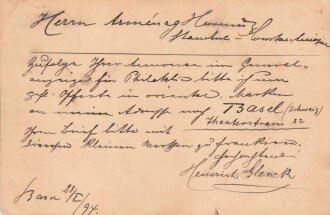 Herrn Arménag
Stambul - Constantinopel
Zufolge Ihrer Annonce im General-
anzeiger für Philatelie bitte ich um
gefl. Offerte in oriental. Marken
an meine Adresse nach Basel (Schweiz)
Theaterstrasse 22
Ihren Brief bitte mit
diversen kleinen Marken zu frankieren.
Hochachtend
Heinrich Glenck
Basel 28/I/94.